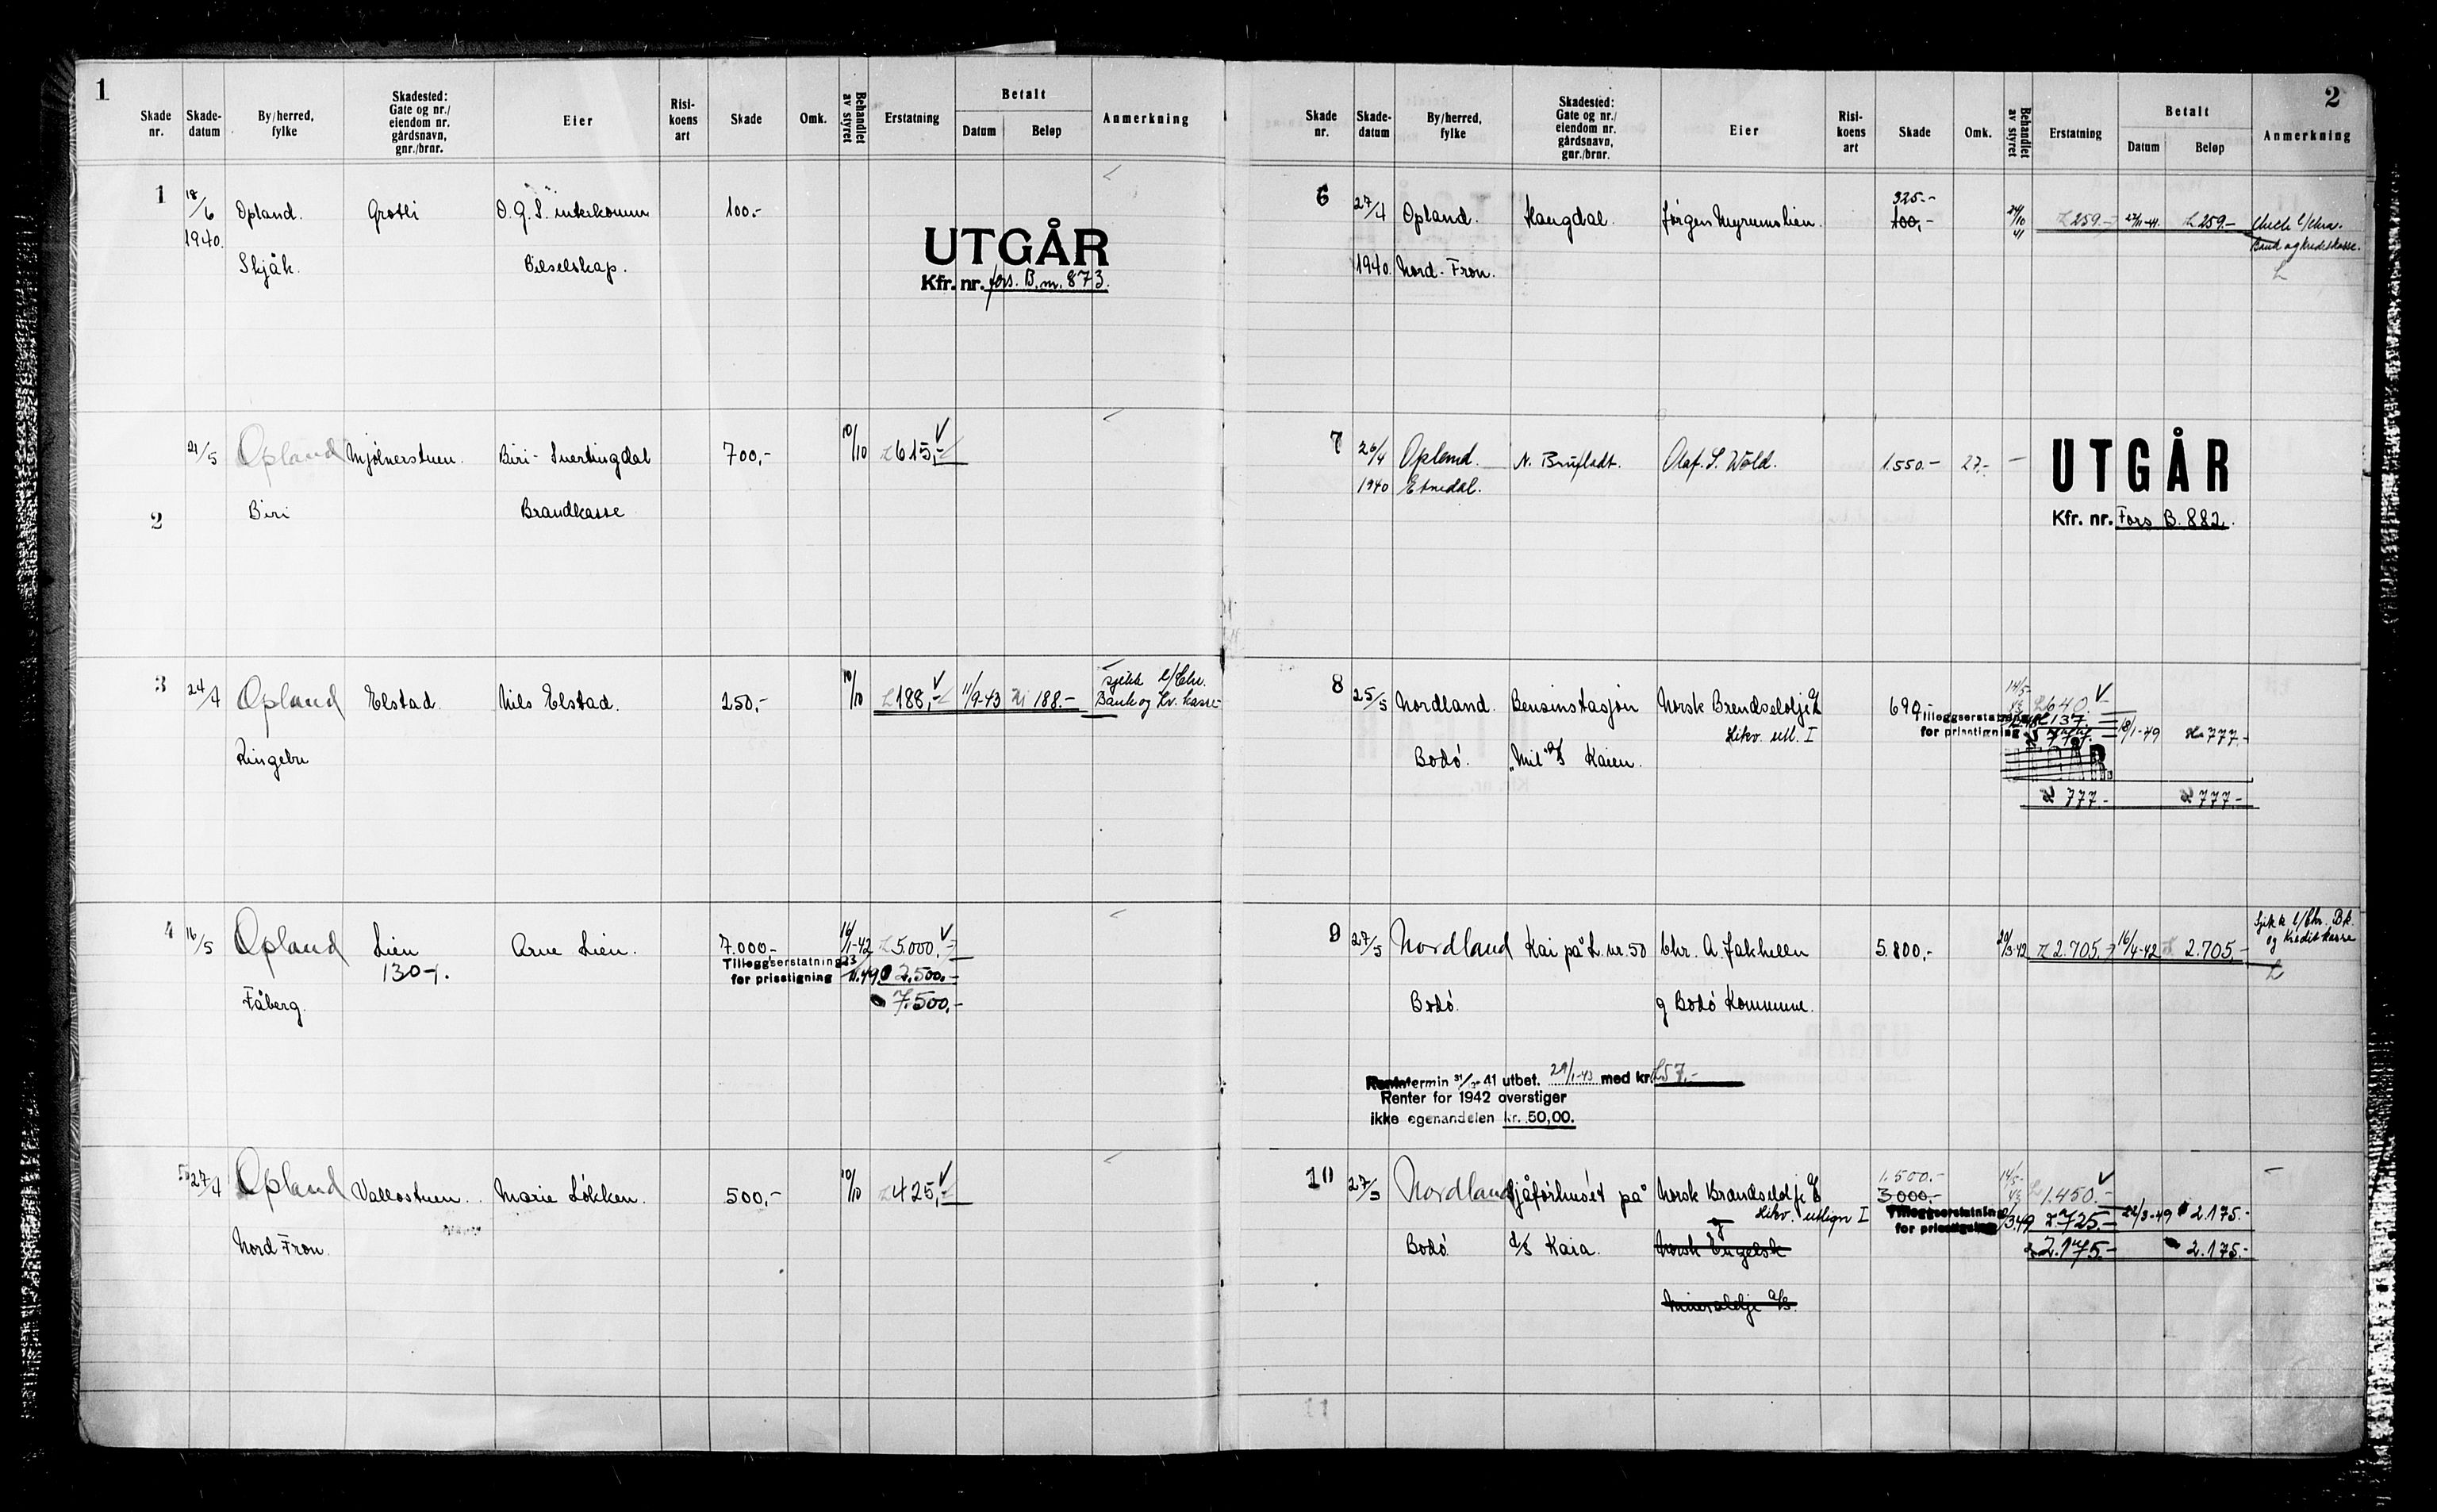 1
Skade nr.
Skade-datum
By/herred, fylke
Skadested: Gate og nr./ eiendom nr. gårdsnavn, gnr./brnr.
Eier
Risi-koens art
Skade
Omk.
Behandlet av styret
Erstatning
Betalt
Datum
Beløp
Anmerkning
1
18/6
Opland.
Grotli
O.G.S. interkomm
100.-
1940.
Skjåk.
Oilselskap.
UTGÅR
Kfr. nr. fors. B. nr. 873.
2
21/5
Opland
Mjølnerstuen.
Biri- Snertingdal
700,-
10/10
615,-
Biri
Brandkasse
3
24/4
Opland
Elstad.
Nils Elstad.
250,-
10/10
188,-
11/9-43
188.-
Sjekk C/Chr.
Bank og Kr. kasse
Ringebu
4
16/5
Opland
Lien
Arne Lien.
7.000.-
16/1-42
5.000,-
130-1.
Tilleggserstatning
for prisstigning
2.500.-
Fåberg.
7.500,-
5
27/4
Opland
Vallostuen.
Marie Løkken.
500,-
10/10
425,-
Nord Fron.
2
Skade nr.
Skade-datum
By/herred, fylke
Skadested: Gate og nr./ eiendom nr. gårdsnavn, gnr./brnr.
Eier
Risi-koens art
Skade
Omk.
Behandlet av styret
Erstatning
Betalt
Datum
Beløp
Anmerkning
6
27/4
Opland.
Haugdal.
Jørgen Myrumslien.
325.-
100,-
24/10 41
259.-
27/11-41.
259.-
1940.
Nord-Fron.
Bank og Kreditkasse.
7
26/4
Opland.
N. Brufladt.
Olaf. S. Wold.
1.550.-
27.-
1940
Etnedal.
UTGÅR
Kfr. nr. Fors B. 882.
8
25/5
Nordland.
Bensinstasjon
Norsk Brendselolje A/S
690.-
640.-
Likv. utl. I
Tilleggserstatning
for prisstigning
137.-
777.-
18/1-49
777.-
Bodø.
"Mil" A/S Kaien.
777.-
777.-
9
27/5
Nordland
Kai på L. nr. 50
Chr. A. Jakhelln
5.800,-
20/3-42
2.705.-
16/4-42
2.705.-
Sjekk C/Chr. Bk.
og Kreditkasse
Bodø.
og Bodø Kommune.
Rentetermin 31/12-41 utbet. 29/1-43 med kr. 157.-
Renter for 1942 overstiger
ikke egenandelen kr. 50,00.
10
27/5
Nordland
Sjåførhuset på
Norsk Brændselolje A/S
1.500.-
3.000.-
1.450.-
Likv. utlign I
Tilleggserstatning
for prisstigning
725.-
22/3-49
2.175.-
Bodø
d/s Kaia.
og
Norsk Engelsk
2.175.-
2.175.-
Mineralolje A/S.
11